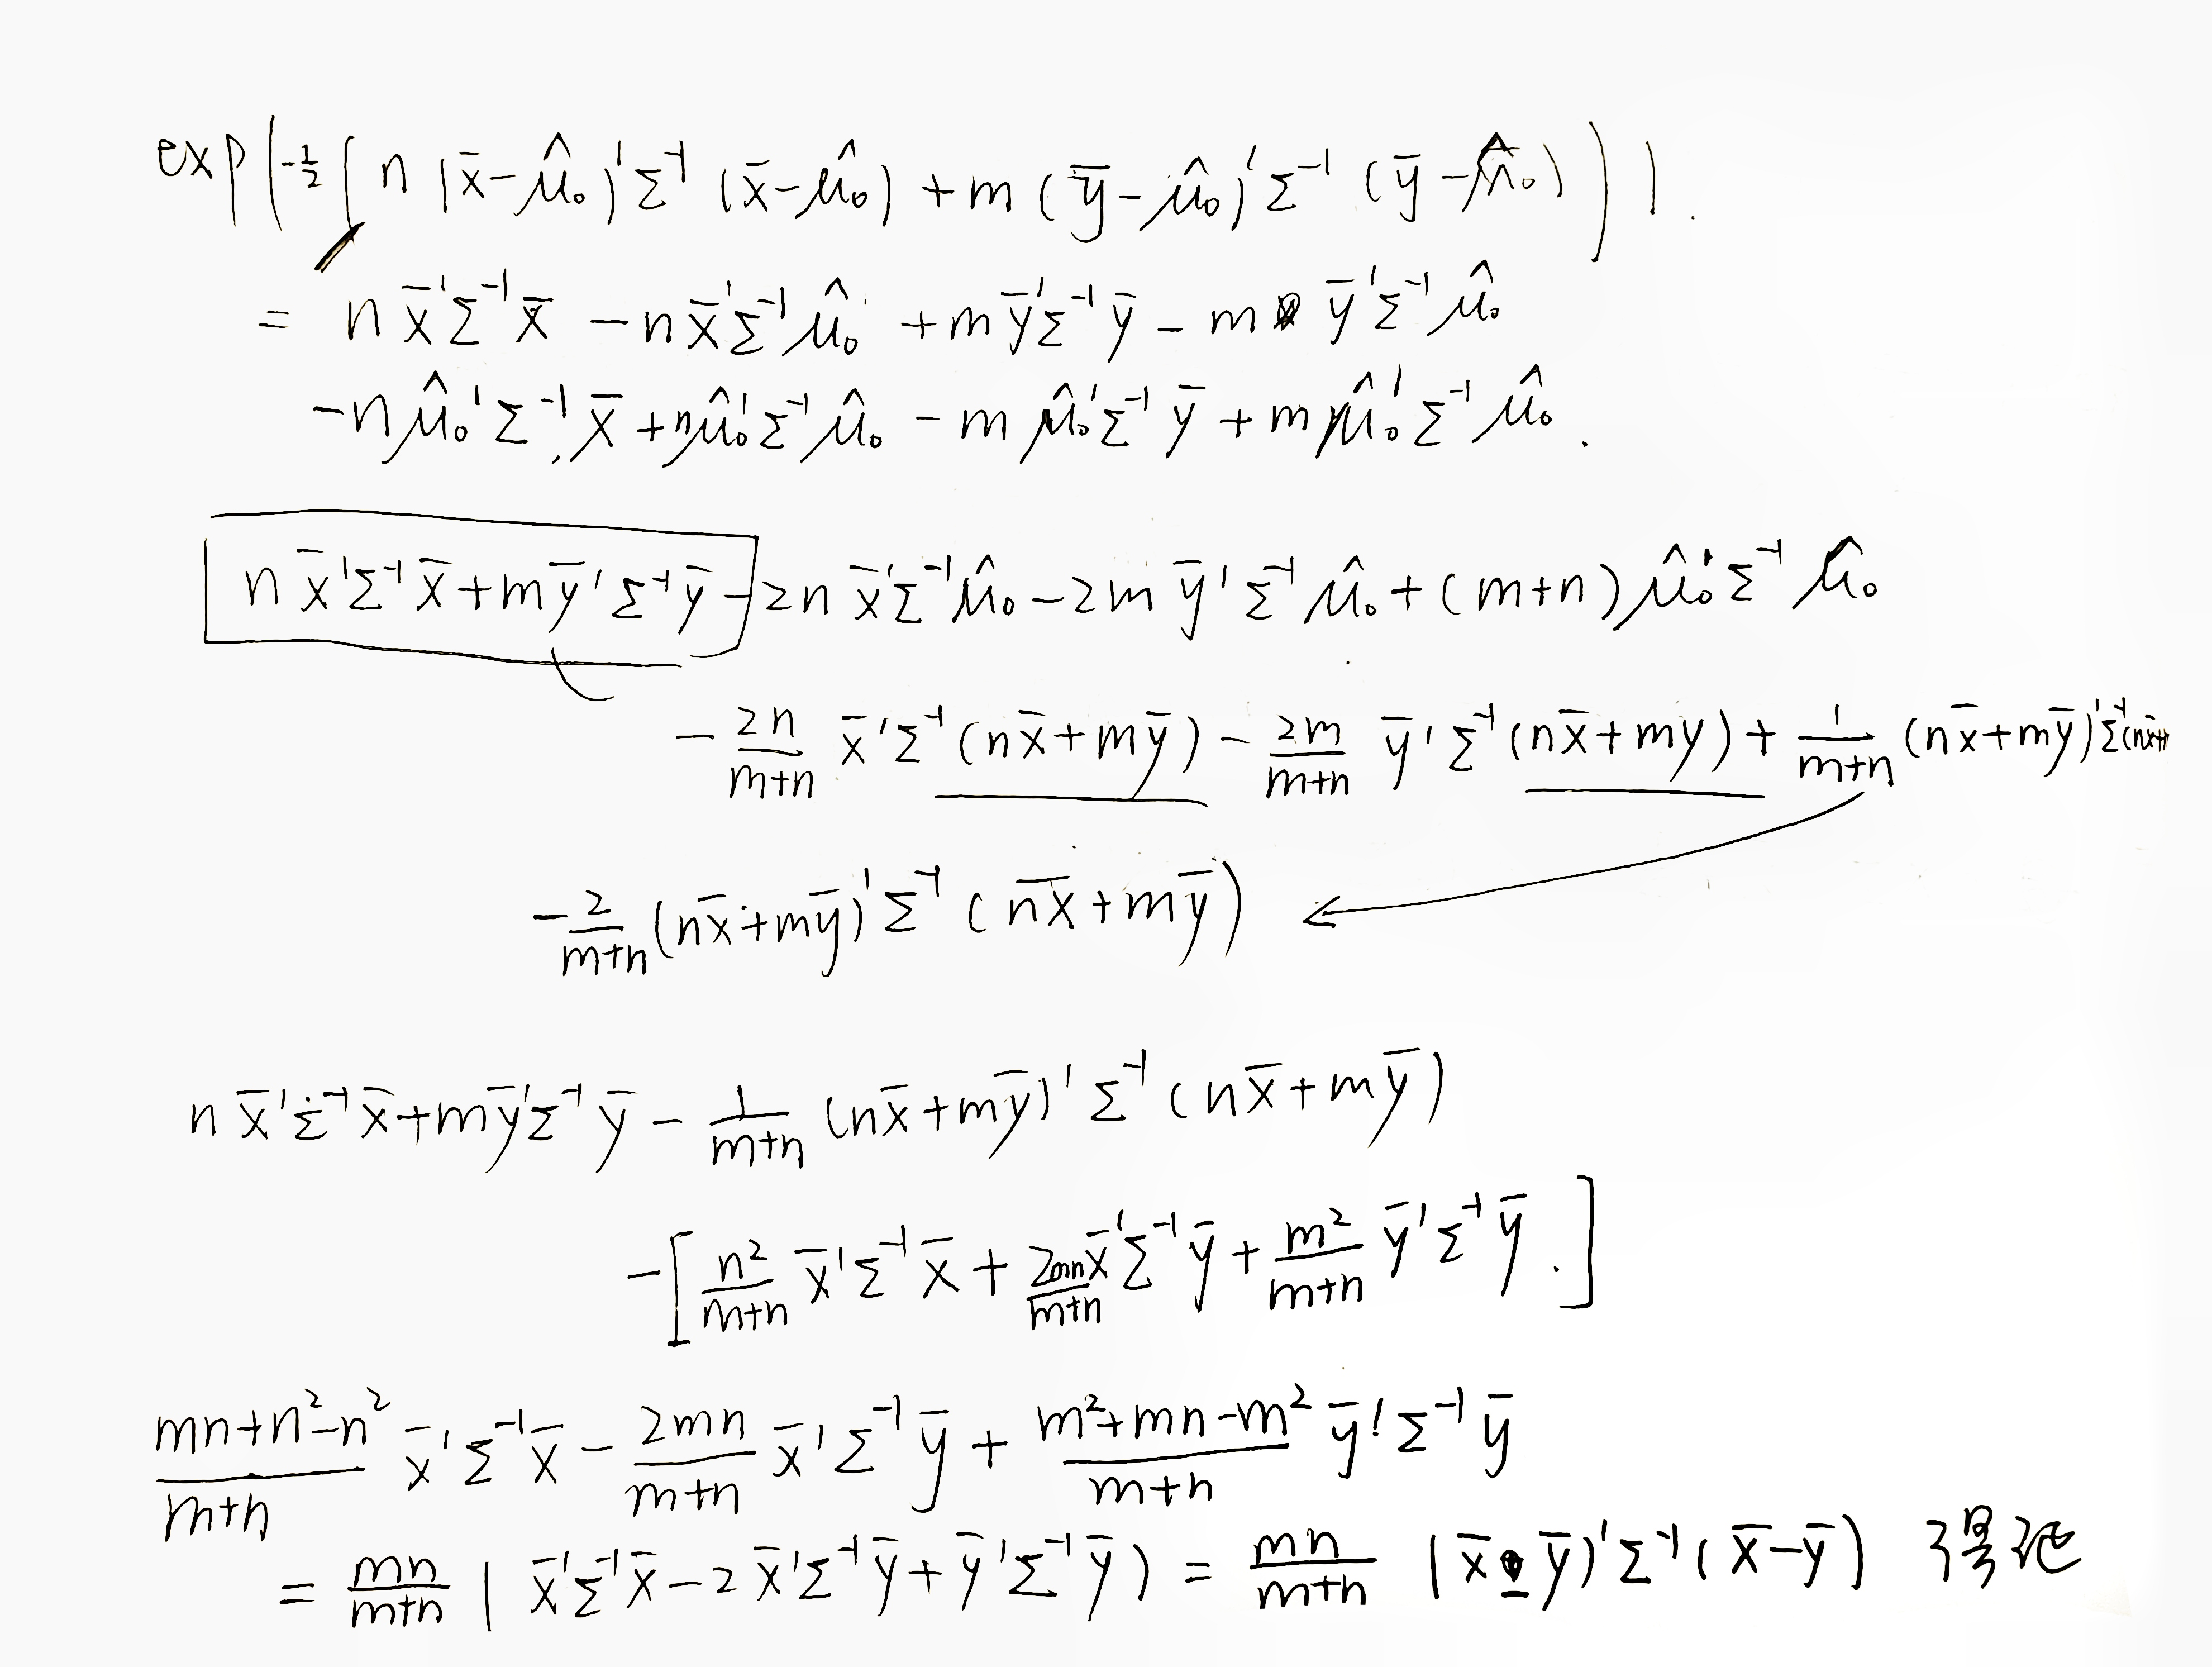 exp(-½(n(x̄-μ̂₀)'Σ⁻¹(x̄-μ̂₀)+m(ȳ-μ̂₀)'Σ⁻¹(ȳ-μ̂₀))).
= nx̄'Σ⁻¹x̄ -nx̄'Σ⁻¹μ̂₀ +mȳ'Σ⁻¹ȳ - m ȳ'Σ⁻¹μ̂₀
-nμ̂₀'Σ⁻¹x̄+nμ̂₀'Σ⁻¹μ̂₀ - mμ̂₀'Σ⁻¹ȳ+mμ̂₀'Σ⁻¹μ̂₀.
nx̄'Σ⁻¹x̄+mȳ'Σ⁻¹ȳ-2nx̄'Σ⁻¹μ̂₀-2mȳ'Σ⁻¹μ̂₀+(m+n)μ̂₀'Σ⁻¹μ̂₀
- 2n/(m+n) x̄'Σ⁻¹(nx̄+mȳ)- 2m/(m+n) ȳ'Σ⁻¹(nx̄+my)+ 1/(m+n) (nx̄+mȳ)'Σ⁻¹(nx̄+m
- 2/(m+n) (nx̄+mȳ)'Σ⁻¹(nx̄+mȳ)
nx̄'Σ⁻¹x̄+mȳ'Σ⁻¹ȳ - 1/(m+n) (nx̄+mȳ)'Σ⁻¹(nx̄+mȳ)
-[n²/(m+n) x̄'Σ⁻¹x̄+ 2mn/(m+n) x̄'Σ⁻¹ȳ+ m²/(m+n) ȳ'Σ⁻¹ȳ.]
(mn+n²-n²)/(m+n) x̄'Σ⁻¹x̄- 2mn/(m+n) x̄'Σ⁻¹ȳ+ (m²+mn-m²)/(m+n) ȳ'Σ⁻¹ȳ
= mn/(m+n) (x̄'Σ⁻¹x̄-2x̄'Σ⁻¹ȳ+ȳ'Σ⁻¹ȳ) = mn/(m+n) (x̄-ȳ)'Σ⁻¹(x̄-ȳ) 得证